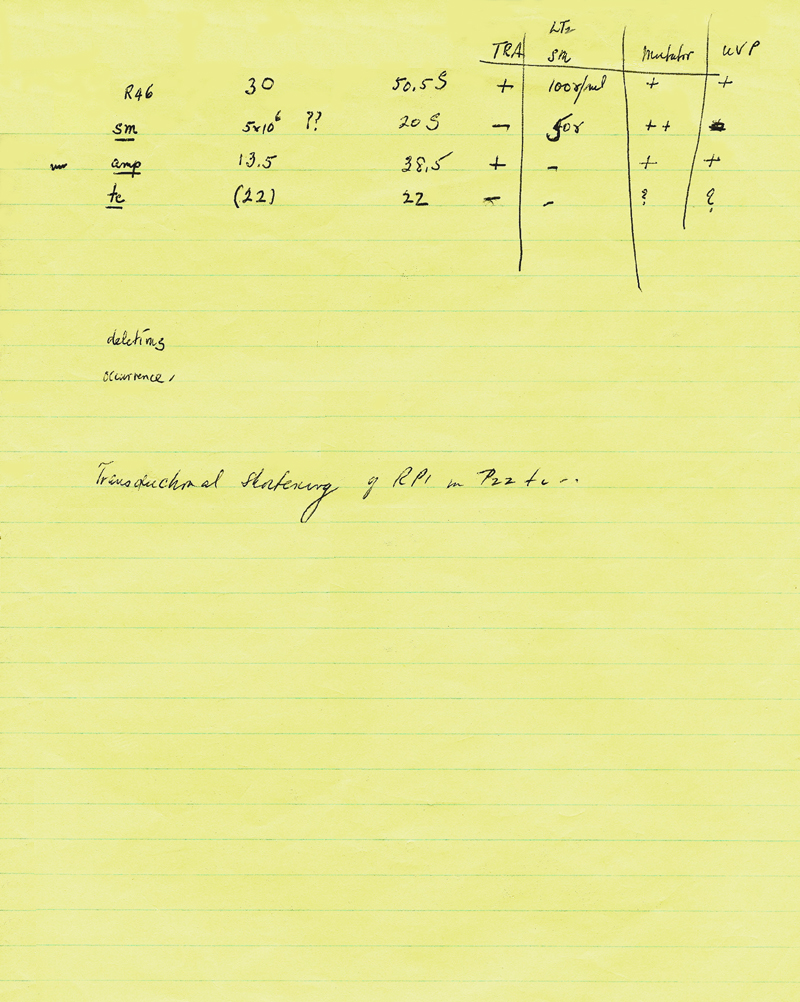 LT2
TRA sm mutator UVP
R46 30 50.5S + 100γ/ml + +
sm 5x10⁶ ?? 20S - 50γ ++
amp 13.5 38.5 + - + +
tc (22) 22 - - ? ?
deleting
occurrence,
Transductional shortening of RP1 in P22 tc...